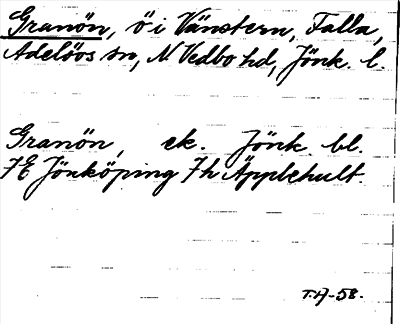 Granön, ö i Vänstern, Falla,
Adelöos sn, N Vedbo hd, Jönk. l.
Granön, ek. Jönk. bl.
7E Jönköping 7h Äpplehult.
T.A-58.